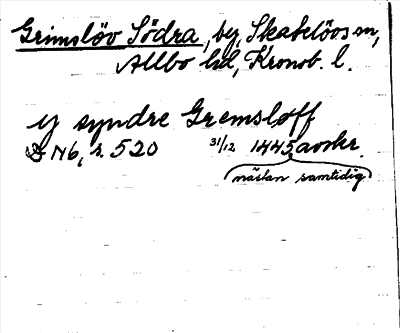 Grimslöv Södra, by, Skatelövs sn,
Allbo hd, Kronob. l.
y syndre Gremsløff
D N6, s. 520 31/12 1445, avskr.
(nästan samtidig)